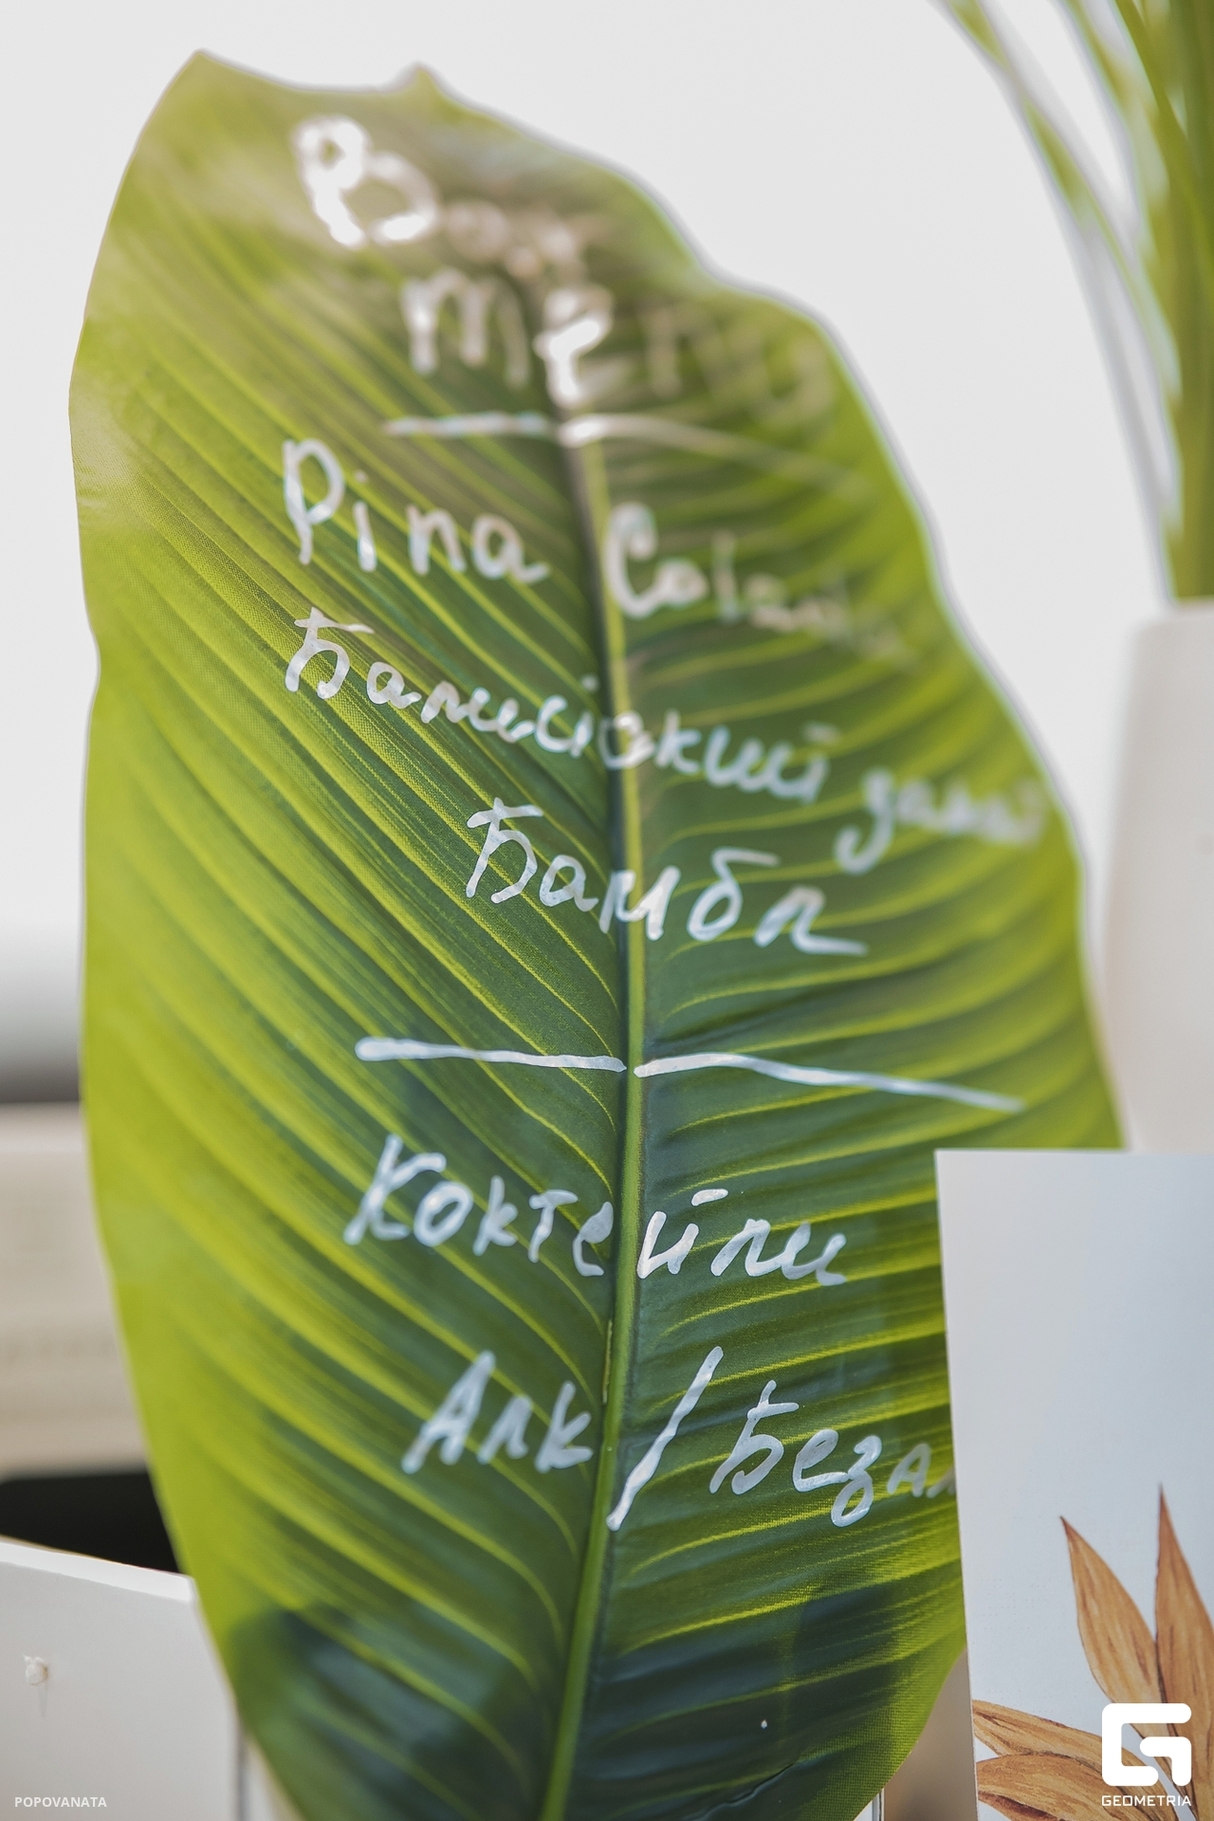 menu
Pina Colada
Балийский
Бамбл
Коктейли
Алк / Безал
POPOVANATA
GEOMETRIA